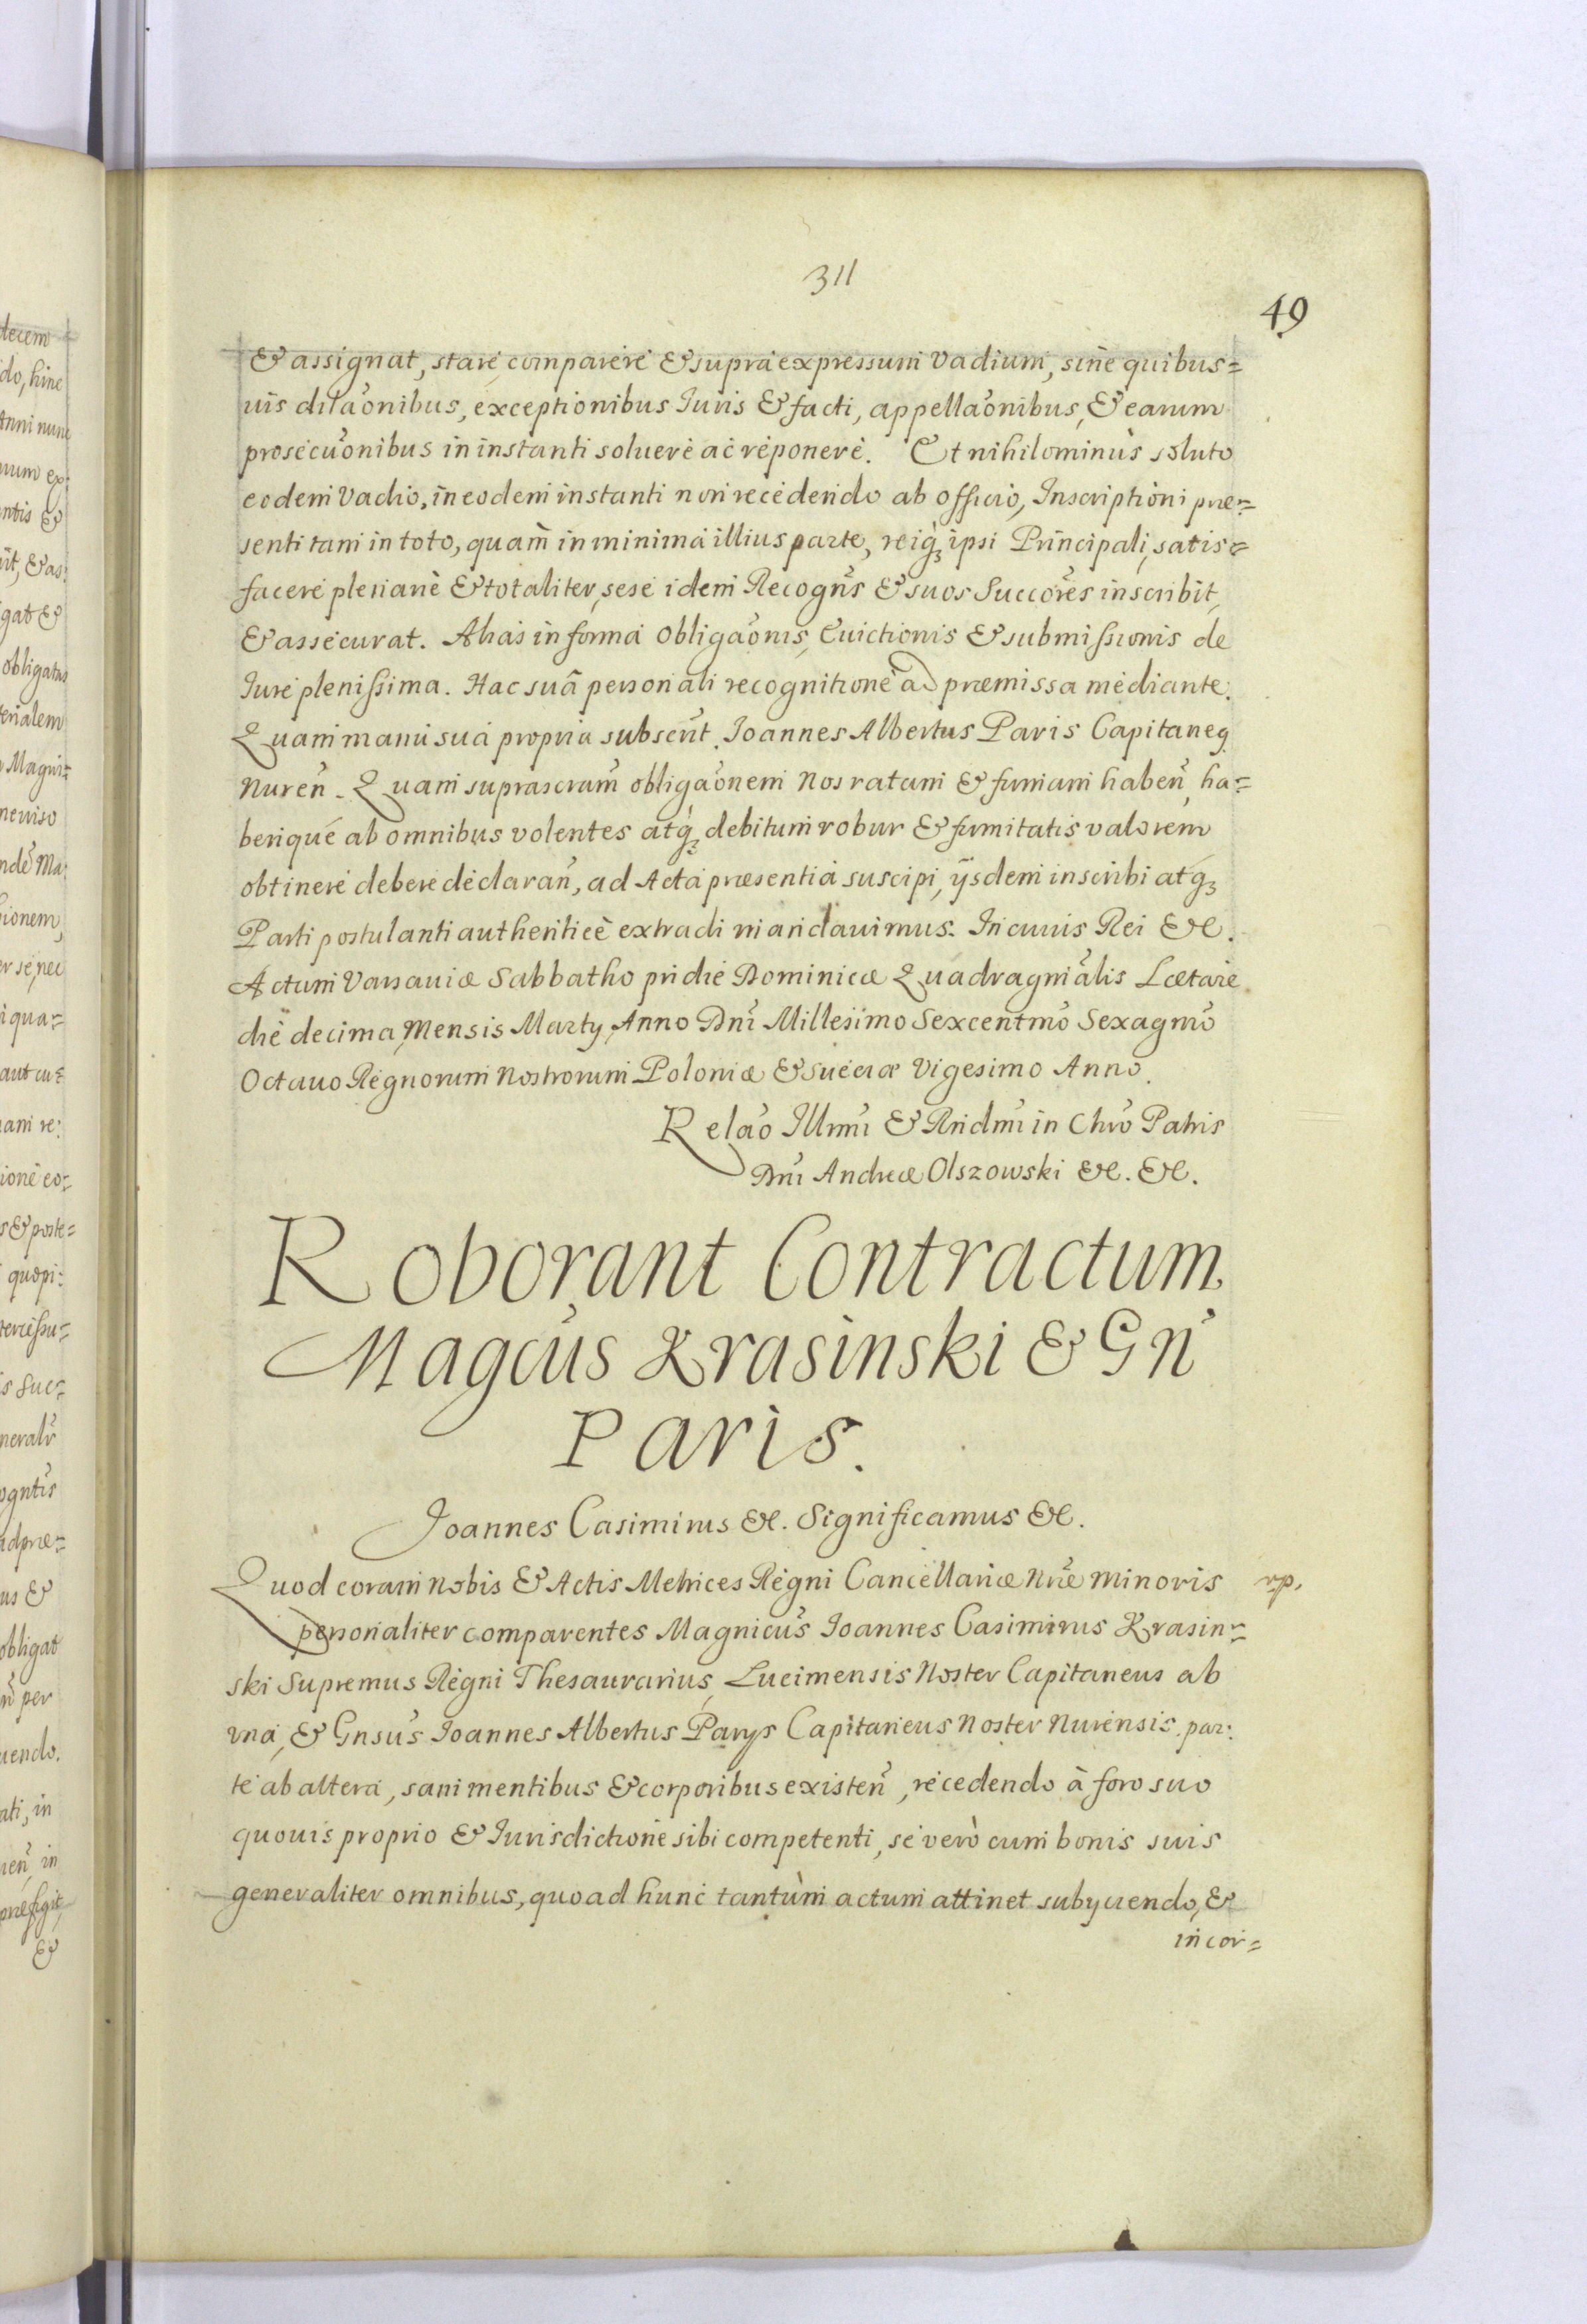 311
49
& assignat, stare, comparere & supra expressum Vadium, sine quibus=
uis dilãonibus, exceptionibus Iuris & facti, appellãonibus, & earum
prosecuõonibus in instanti soluere ac reponere. Et nihilominùs soluto
eodem Vadio, in eodem instanti non recedendo ab officio, Inscriptioni præ=
senti tam in toto, quam̀ in minima illius parte, reiq́ꝫ ipsi Principali, satis=
facere plenariè & totaliter, sese idem Recogñs & suos Succores̃ inscribit,
& assecurat. Alias in forma Obligãonis, Euictionis & submissionis de
Iure plenissima. Hac suâ personali recognitione ad præmissa mediante.
Quam manu sua propria subscr̃t. Ioannes Albertus Paris Capitaneq
Nureñ. Quam suprascram̃ obligãonem Nos ratam & firmam habeñ, ha=
beriqué ab omnibus volentes atq́ꝫ debitum robur & firmitatis valorem
obtinere debere declarañ, ad Acta præsentia suscipi, ijsdem inscribi atq́ꝫ
Parti postulanti authenticè extradi mandauimus. In cuius Rei &c.
Actum Varsauiæ Sabbatho pridie Dominicæ Quadragmãlis Lætare
die decima Mensis Martÿ, Anno Dnĩ Millesimo Sexcentmõ Sexagmõ
Octauo Regnorum Nostrorum Poloniæ & Sueciæ Vigesimo Anno.
Relaõ Illmĩ & Rndmĩ in Chrõ Patris
Dnĩ Andreæ Olszowski &c. &c.
Roborant Contractum
Magcũs Krasinski & Gñ
Paris.
Ioannes Casimirus &c. Significamus &c.
Quod coram Nobis & Actis Metrices Regni Cancellariæ Nrẽ Minoris
rp.
personaliter comparentes Magnicũs Ioannes Casimirus Krasin=
ski Supremus Regni Thesaurarius, Lucimensis Noster Capitaneus ab
vna, & Gnsũs Ioannes Albertus Parys Capitaneus Noster Nurensis par:
te ab altera, sani mentibus & corporibus existeñ, recedendo à foro suo
quouis proprio & Iurisdictione sibi competenti, se verò cum bonis suis
generaliter omnibus, quoad hunc tantùm actum attinet subÿciendo, &
incor=